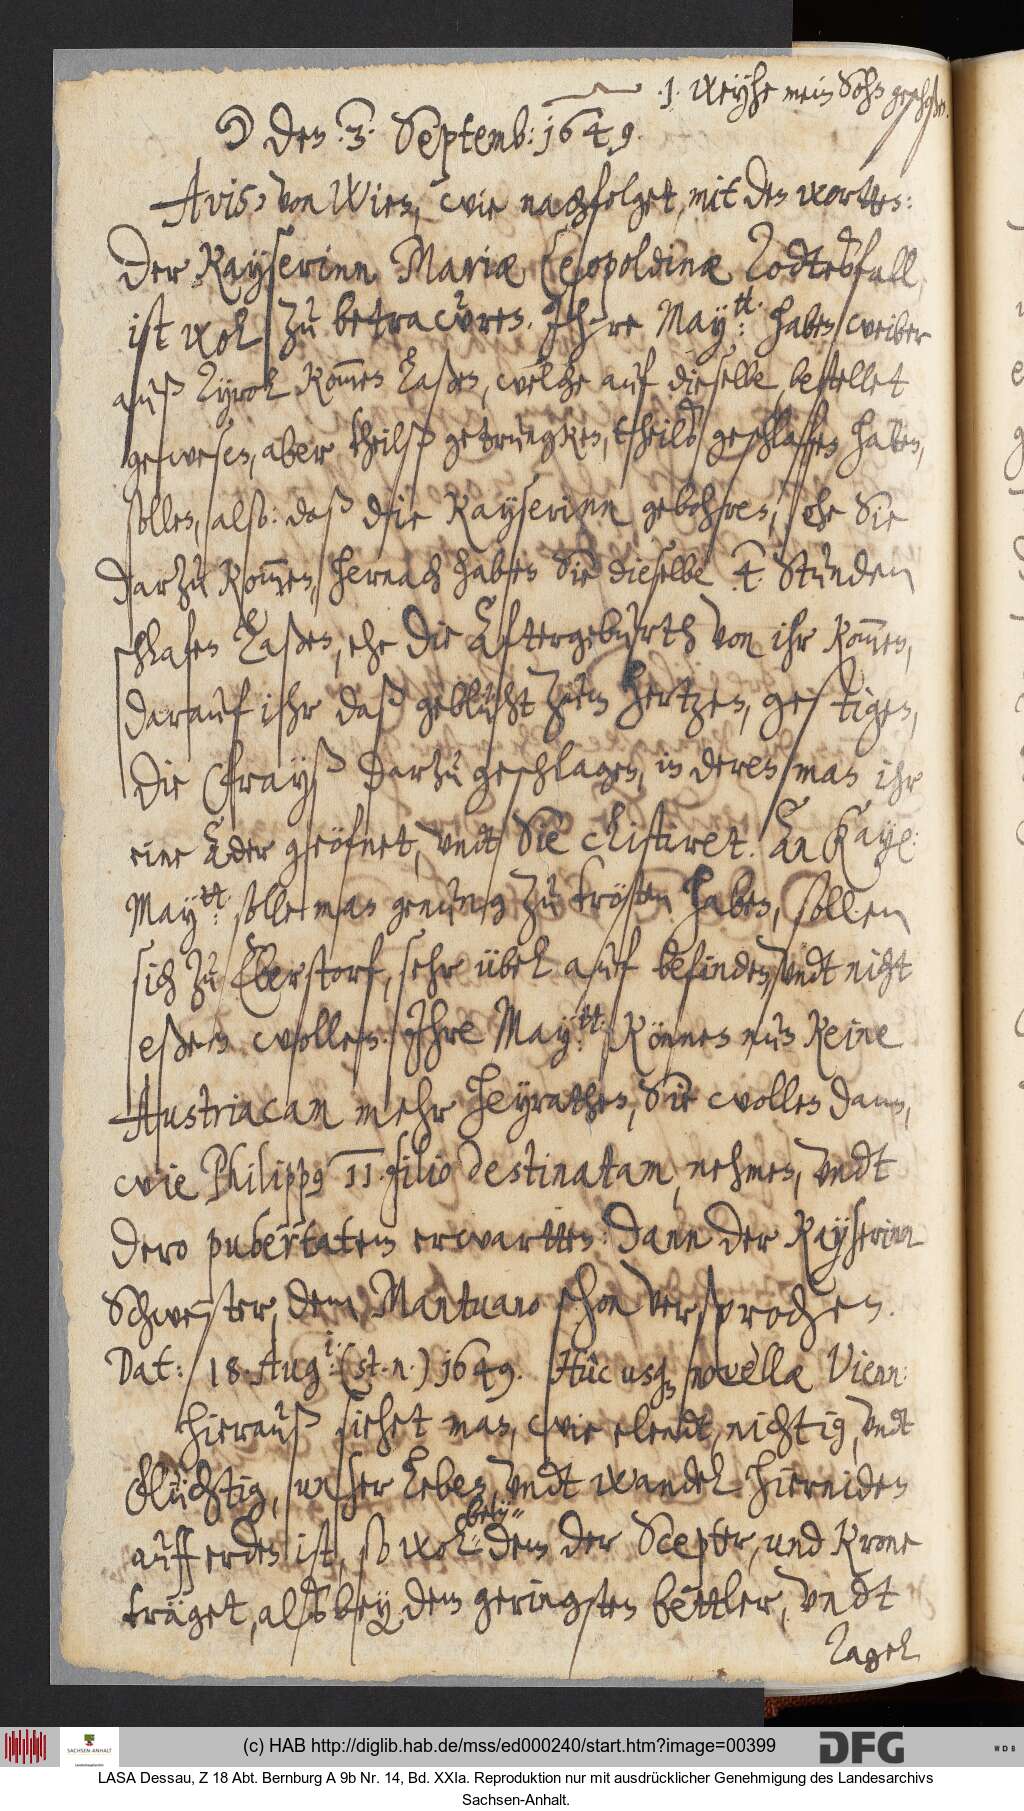 .1. Weyhe mein Sohn
☽ den .3. Septemb: 1649.
Aviso von Wien, wie nachfolget, mit den worten:
Der Kayserinn Mariæ Leopoldinæ Todtesfall,
ist wol zu betrawren. Ihre May:tt: haben weiber
auß Tyrol kommen laßen, welche auf dieselbe, bestellet
gewesen, aber theilß getruncken, theilß geschlaffen haben,
sollen, also: daß die Kayserinn gebohren, ehe Sie
darzu kommen, hernach haben Sie dieselbe 4. Stunden
schlafen laßen, ehe die Aftergeburth von ihr kommen,
darauf ihr daß geblüht zum hertzen, gestigen,
die Frayß darzu geschlagen, in deren man ihr
eine Ader geöfnet, undt Sie clistiret. An Kay:
May:tt: solle man genung zu trösten haben, sollen
sich zu Eberstorf, sehr übel auf befinden, undt nicht
eßen wollen. Ihre May:tt: können nun keine
Austriacam mehr heyrathen, Sie wollen dann,
wie Philippus II. filio destinatam, nehmen, undt
dero pubertatem erwartten: dann der Kayserinn
Schwester, dem Mantuano schon versprochen.
Dat: 18. Aug:i: (st. n.) 1649. Huc usque novellæ Vienn:
hierauß siehet man, wie elendt, nichtig, undt
flüchtig, unser leben, undt wandel hieniden
auff erden ist, so wol
bey
dem der Scepter, und Krone
träget, alß bey dem geringsten bettler, undt
Tagel
(c) HAB http://diglib.hab.de/mss/ed000240/start.htm?image=00399
SACHSEN-ANHALT
DFG
W D B
LASA Dessau, Z 18 Abt. Bernburg A 9b Nr. 14, Bd. XXIa. Reproduktion nur mit ausdrücklicher Genehmigung des Landesarchivs
Sachsen-Anhalt.